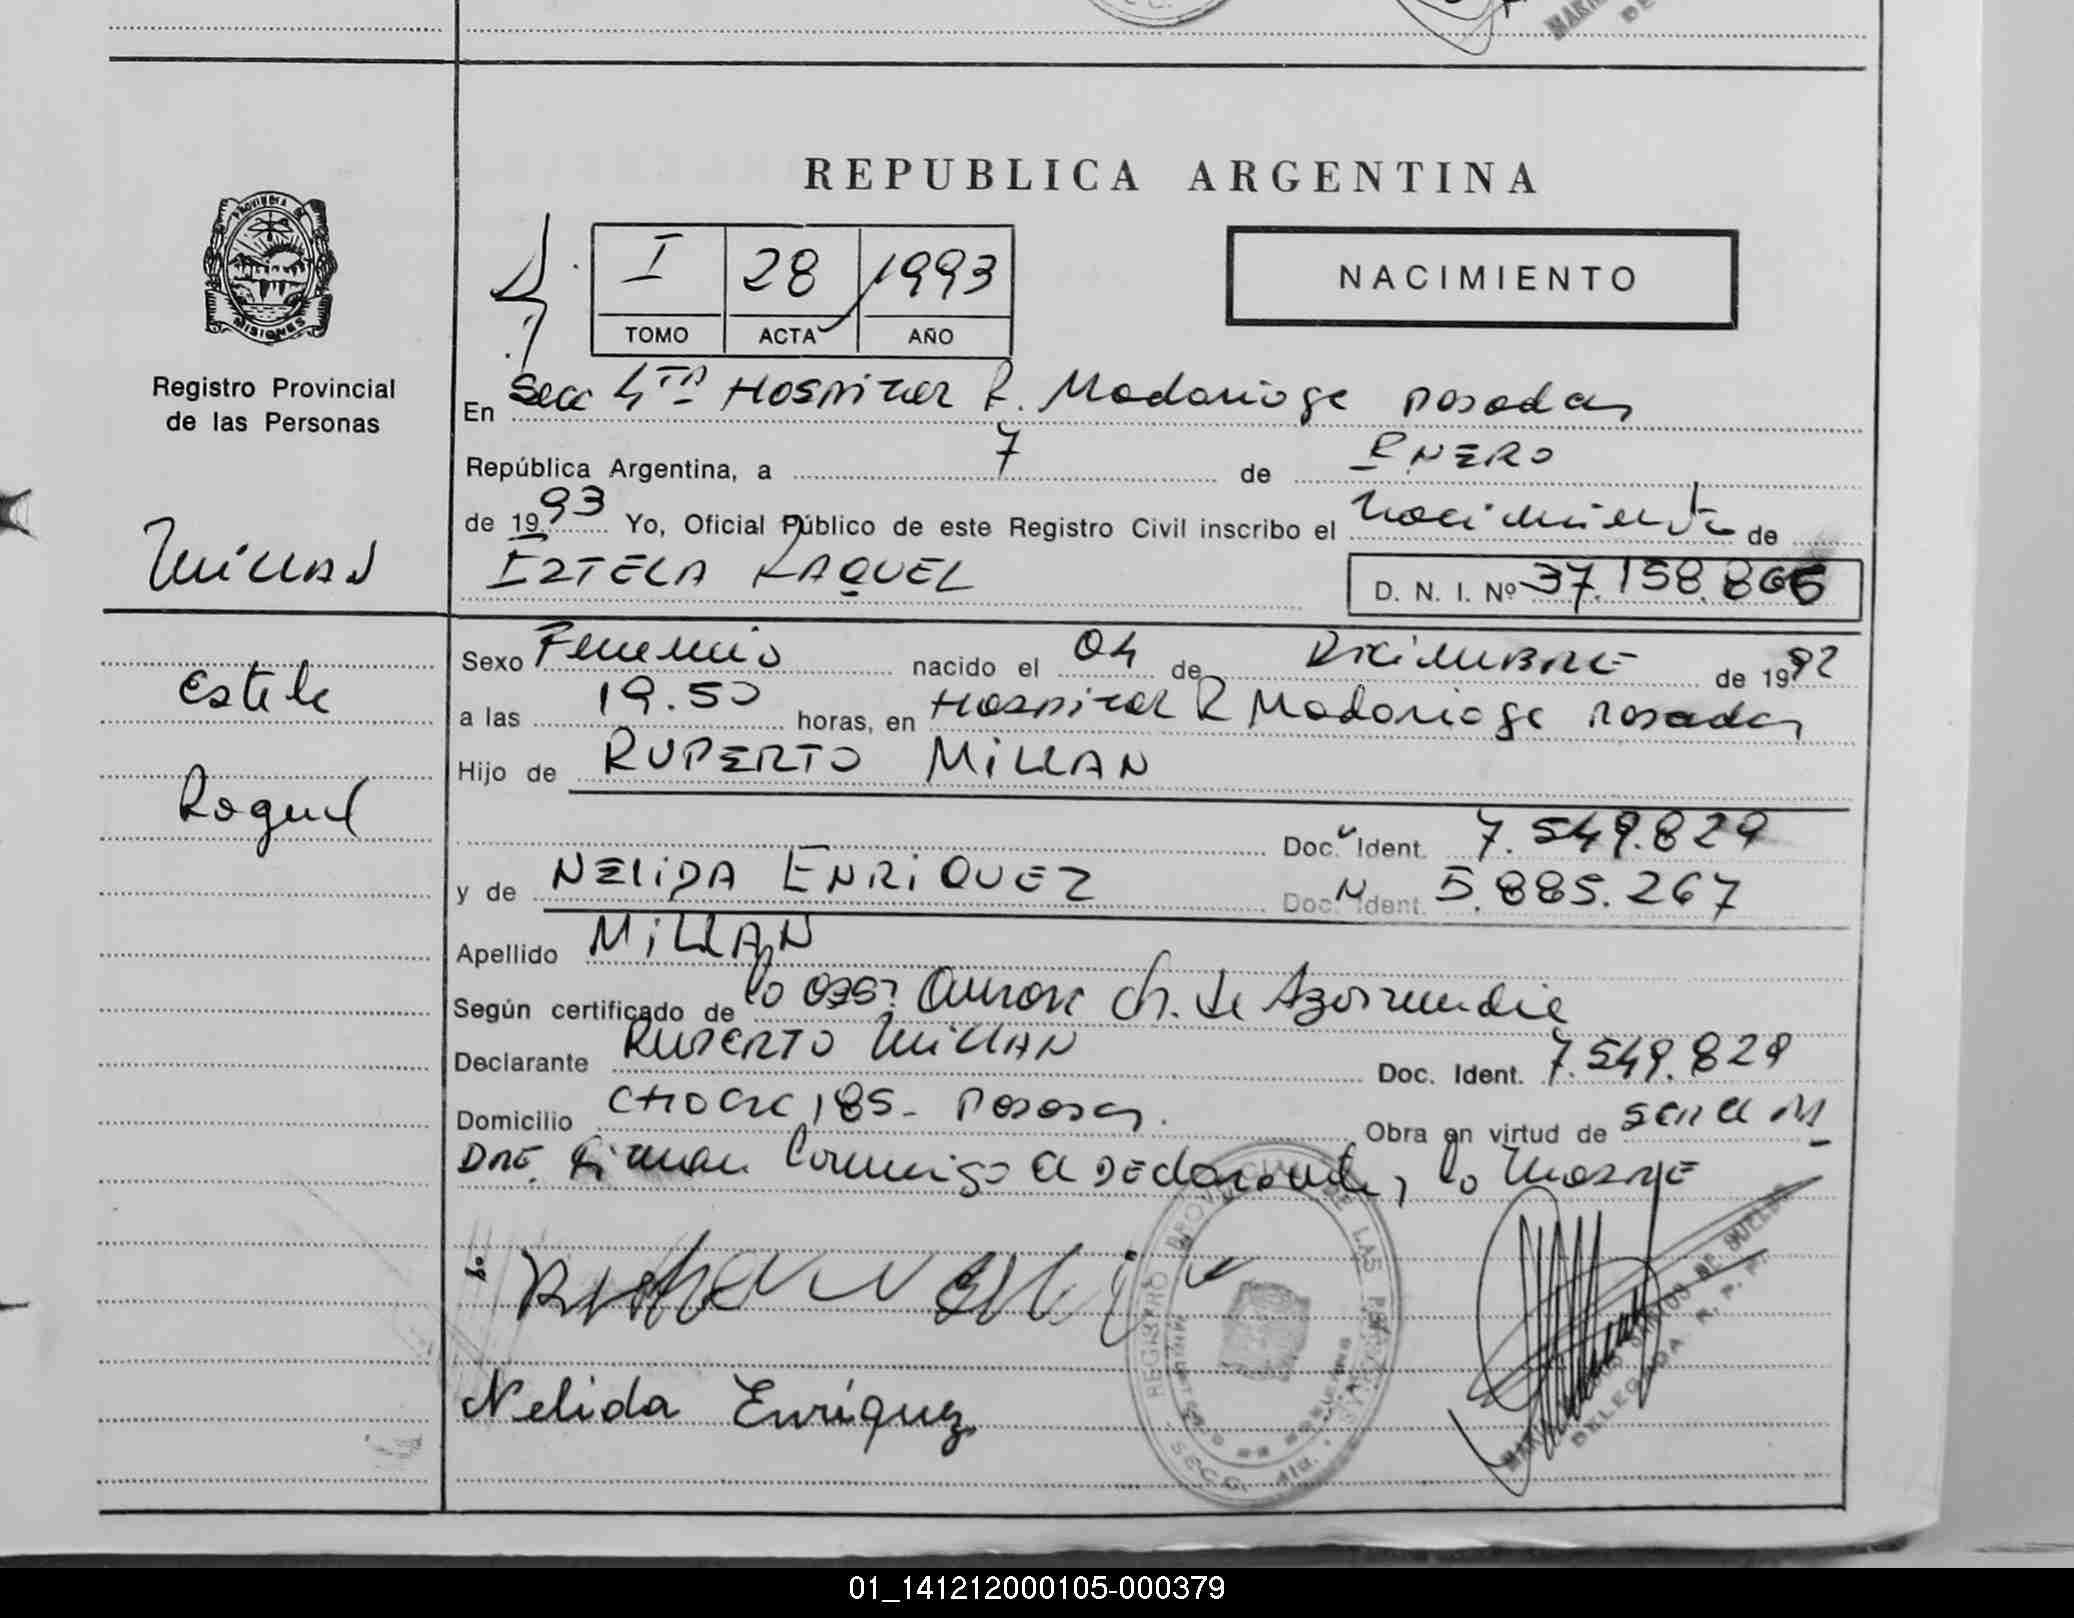 REPUBLICA ARGENTINA
PROVINCIA DE MISIONES
I 28 1993
TOMO ACTA AÑO
NACIMIENTO
Registro Provincial
de las Personas
En Secc 4TA Hospital R. Madariaga Posadas
República Argentina, a 7 de ENERO
de 1993 Yo, Oficial Público de este Registro Civil inscribo el nacimiento de
MILLAN
ESTELA RAQUEL D. N. I. Nº 37.158.866
Estela
Raquel
Sexo Femenino nacido el 04 de DICIEMBRE de 1992
a las 19.50 horas, en Hospital R Madariaga Posadas
Hijo de RUPERTO MILLAN
Doc. Ident. 7.549.829
y de NELIDA ENRIQUEZ Doc. Ident. 5.885.267
Apellido MILLAN
Según certificado de la obst Aurora Ch. de
Declarante RUPERTO MILLAN Doc. Ident. 7.549.829
Domicilio 185- Posadas. Obra en virtud de ser el PA
DRE. Firman conmigo el DEclarante, la MADRE
Nelida Enríquez
REGISTRO PROVINCIAL DE LAS PERSONAS
SECC. 4ta.
DELEGADA R. P. P.
01_141212000105-000379